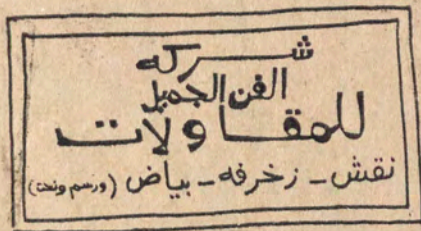 شركه
الفن الجميل
للمقاولات
نقش - زخرفه - بياض (ورسم ونحت)